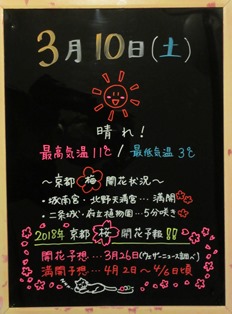 3月10日(土)
晴れ!
最高気温11℃ / 最低気温 3℃
～京都 梅 開花状況～
・城南宮・北野天満宮…満開
・二条城・府立植物園…5分咲き
2018年 京都 桜 開花予報!!
開花予想…3月26日(ウェザーニュース調べ)
満開予想…4月2日～4/6日頃